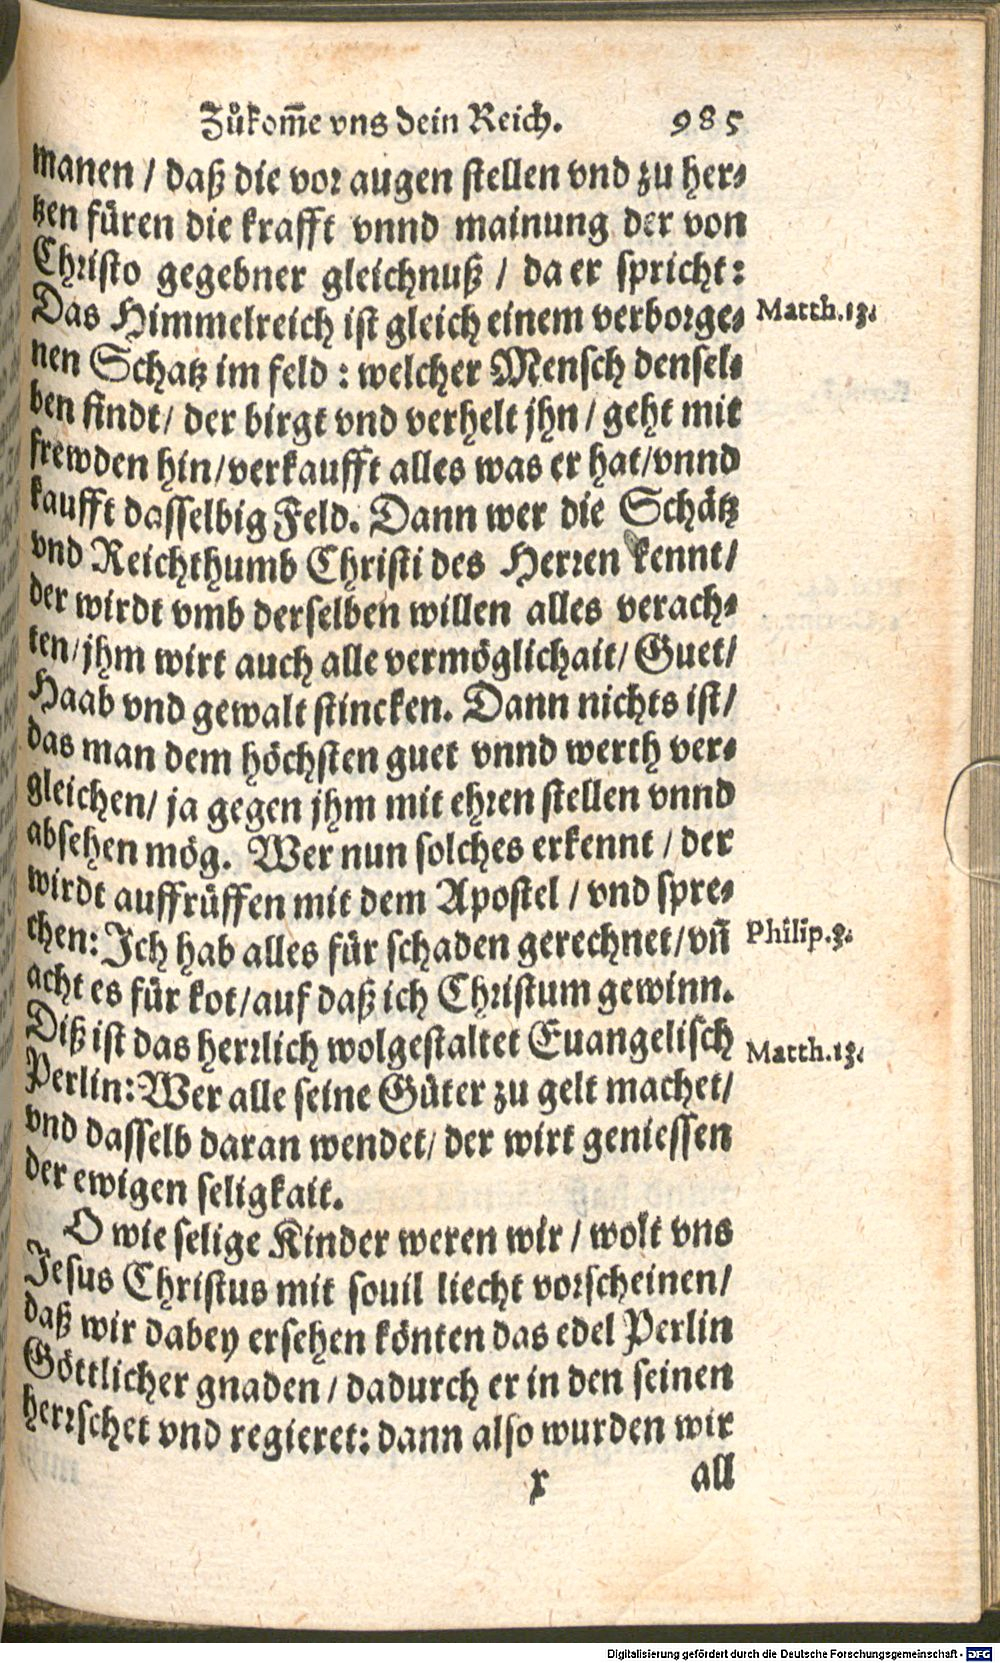 Zůkom̃e vns dein Reich. 985
manen / daß die vor augen stellen vnd zu her-
tzen füren die krafft vnnd mainung der von
Christo gegebner gleichnuß / da er spricht:
Das Himmelreich ist gleich einem verborge- Matth.13.
nen Schatz im feld : welcher Mensch densel-
ben findt/ der birgt vnd verhelt jhn / geht mit
frewden hin/verkaufft alles was er hat/vnnd
kaufft dasselbig Feld. Dann wer die Schätz
vnd Reichthumb Christi des Herren kennt/
der wirdt vmb derselben willen alles verach-
ten/jhm wirt auch alle vermöglichait/ Guet/
Haab vnd gewalt stincken. Dann nichts ist/
das man dem höchsten guet vnnd werth ver-
gleichen/ ja gegen jhm mit ehren stellen vnnd
absehen mög. Wer nun solches erkennt / der
wirdt auffrüffen mit dem Apostel / vnd spre-
chen: Ich hab alles für schaden gerechnet/vñ Philip.3.
acht es für kot/auf daß ich Christum gewinn.
Diß ist das herrlich wolgestaltet Euangelisch Matth.13.
Perlin: Wer alle seine Güter zu gelt machet/
vnd dasselb daran wendet/ der wirt geniessen
der ewigen seligkait.
O wie selige Kinder weren wir / wolt vns
Jesus Christus mit souil liecht vorscheinen/
daß wir dabey ersehen könten das edel Perlin
Göttlicher gnaden / dadurch er in den seinen
herrschet vnd regieret: dann also wurden wir
x all
Digitalisierung gefördert durch die Deutsche Forschungsgemeinschaft - DFG